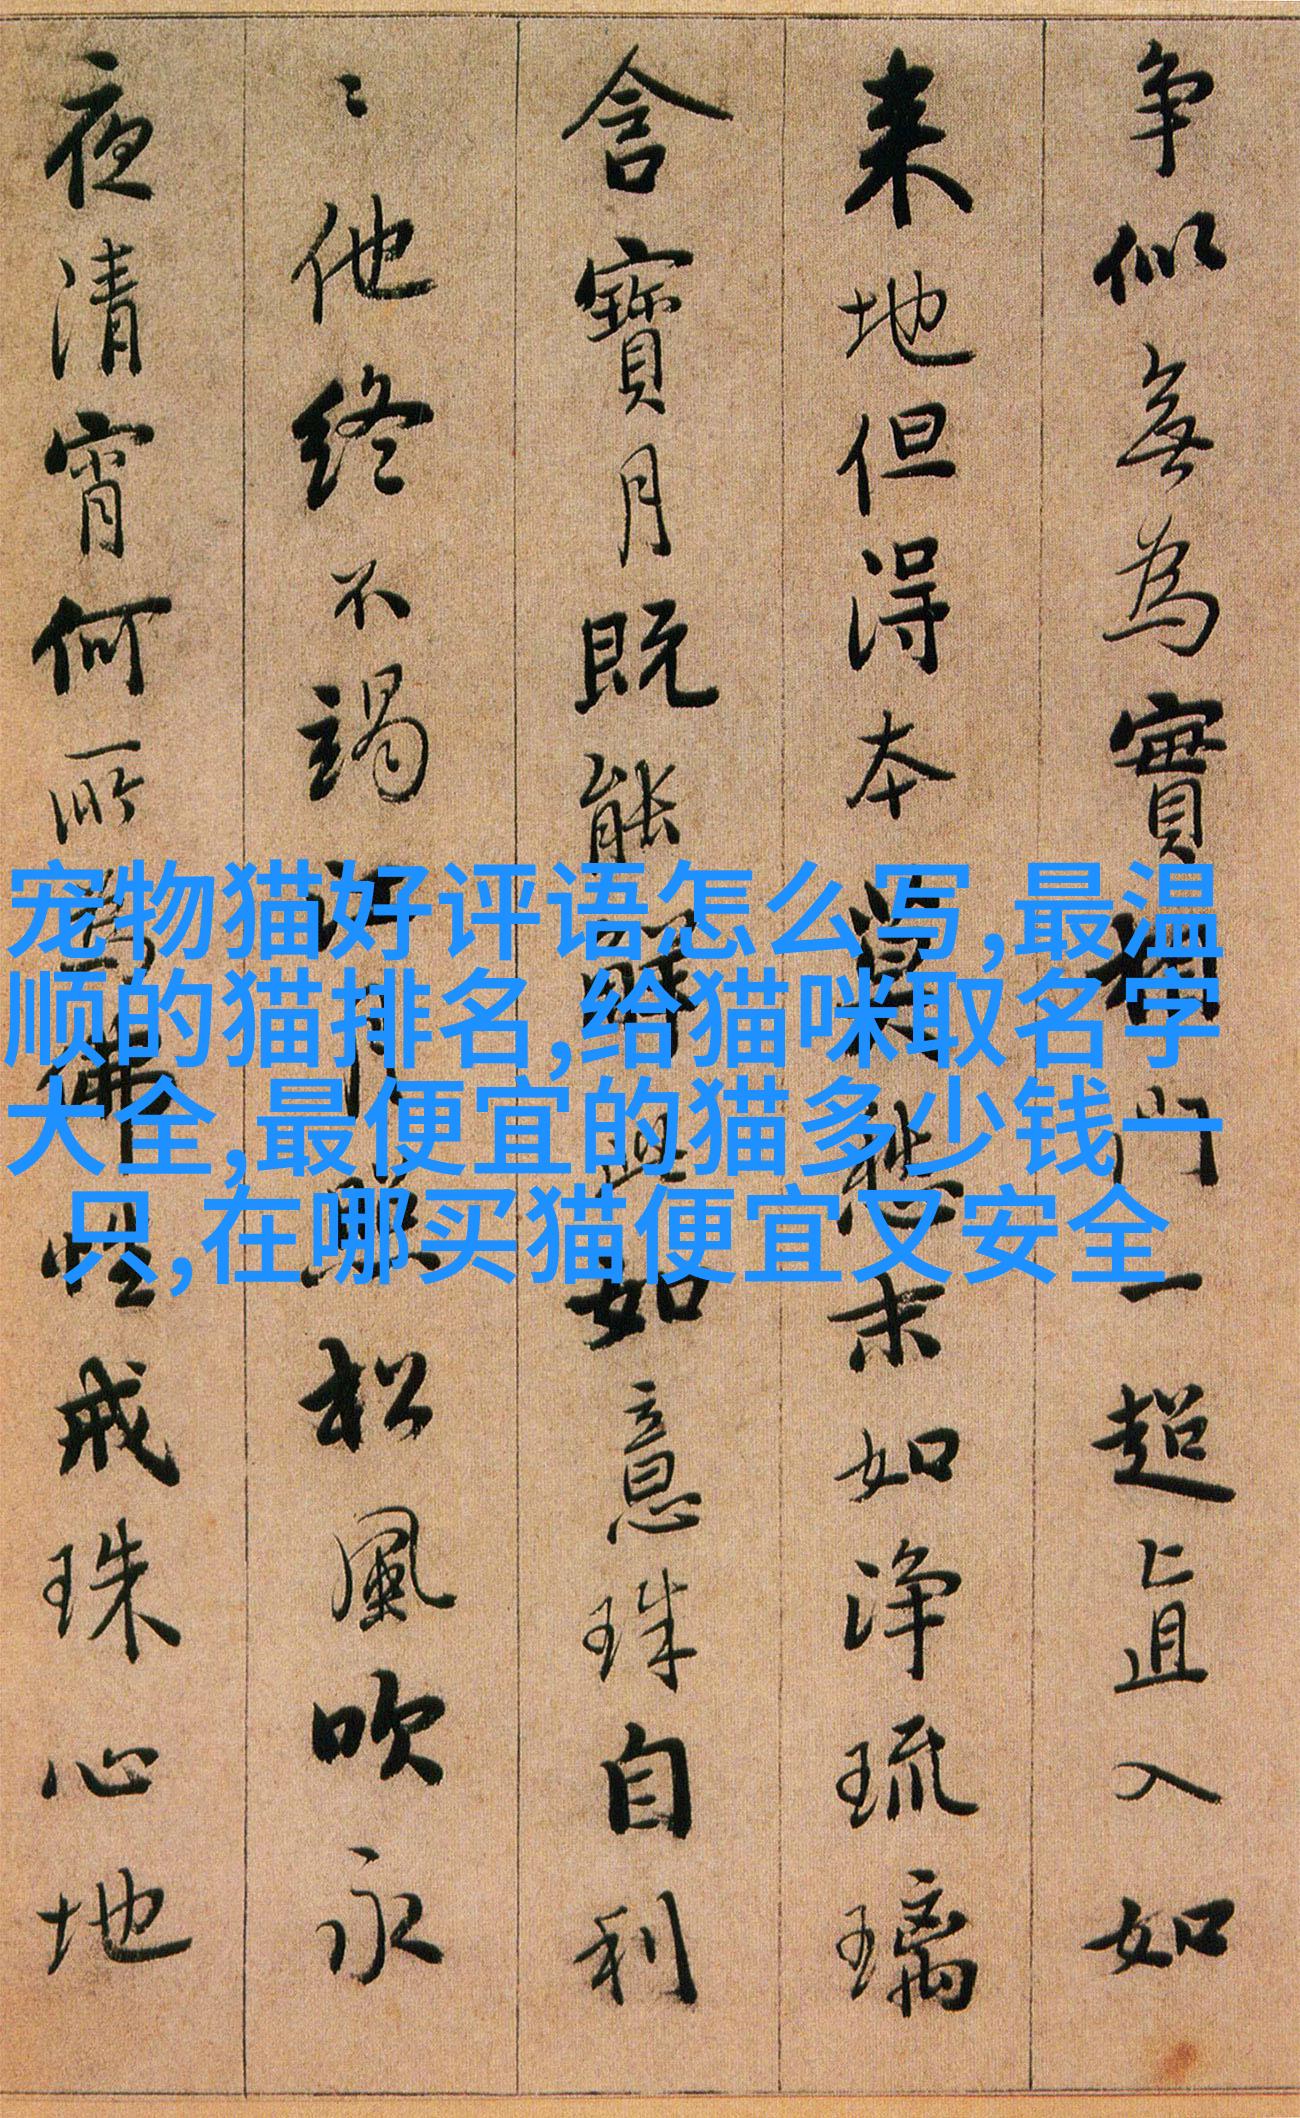 争似無為實相門一超直入如
来地但得本莫愁末如浄琉璃
含寶月既能解此如意珠自利
〻他終不竭江月照松風吹永
夜清宵何所為佛性戒珠心地
宠物猫好评语怎么写,最温
顺的猫排名,给猫咪取名字
大全,最便宜的猫多少钱一
只,在哪买猫便宜又安全